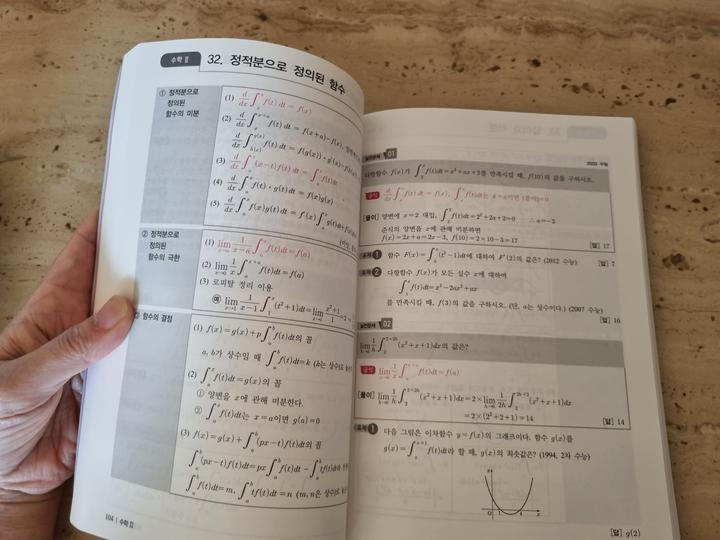 수학 Ⅱ
32. 정적분으로 정의된 함수
① 정적분으로
정의된
함수의 미분
(1) d/dx ∫_a^x f(t) dt = f(x)
(2) d/dx ∫_x^{x+a} f(t) dt = f(x+a)-f(x),
d/dx ∫_{h(x)}^{g(x)} f(t) dt = f(g(x))·g'(x)-f(
(3) d/dx ∫_a^x (x-t)f(t) dt = ∫_a^x f(t)dt
(4)
(5)
② 정적분으로
정의된
함수의 극한
(1) lim_{x→a} 1/(x-a) ∫_a^x f(t)dt = f(a)
(2) lim_{x→0} 1/x ∫_a^{x+a} f(t)dt = f(a)
(3) 로피탈 정리 이용
예 lim_{x→1} 1/(x-1) ∫_1^x (t²+1)dt = lim_{x→1} (x²+1)/1 = 2
함수의 결정
(1) f(x)=g(x)+p∫_a^b f(t)dt의 꼴
a, b가 상수일 때 ∫_a^b f(t)dt=k (k는 상수)로
(2) ∫_a^x f(t)dt=g(x)의 꼴
① 양변을 x에 관해 미분한다.
② ∫_a^x f(t)dt는 x=a이면 g(a)=0
(3) f(x)=g(x)+∫_a^b (px-t)f(t)dt의 꼴
∫_a^b (px-t)f(t)dt=px∫_a^b f(t)dt-∫_a^b tf(t)dt
∫_a^b f(t)dt=m, ∫_a^b tf(t)dt=n (m, n은 상수)로
104 | 수학 Ⅱ
실전문제 01
다항함수 f(x)가 ∫_2^x f(t)dt=x²+ax+2를 만족시킬 때, f(10)의 값을 구하시오.
공식 d/dx ∫_a^x f(t) dt = f(x), ∫_a^x f(t)dt는 x=a이면 (좋적)=0
[풀이] 양변에 x=2 대입, ∫_2^2 f(t)dt=2²+2a+2=0 ∴ a=-3
준식의 양변을 x에 관해 미분하면
f(x)=2x+a=2x-3, f(10)=2×10-3=17
[답] 17
유제 1 함수 F(x)=∫_0^x (t³-1)dt에 대하여 F'(2)의 값은? (2012 수능)
[답] 7
유제 2 다항함수 f(x)가 모든 실수 x에 대하여
∫_1^x f(t)dt=x³-2ax²+ax
를 만족시킬 때, f(3)의 값을 구하시오. (단, a는 상수이다.) (2007 수능)
[답] 16
실전문제 02
lim_{h→0} 1/h ∫_2^{2+2h} (x²+x+1)dx의 값은?
공식 lim_{x→0} 1/x ∫_a^{x+a} f(t)dt=f(a)
[풀이] lim_{h→0} 1/h ∫_2^{2+2h} (x²+x+1)dx=2×lim_{h→0} 1/2h ∫_2^{2h+2} (x²+x+1)dx
=2×(2²+2+1)=14
[답] 14
유제 1 다음 그림은 이차함수 y=f(x)의 그래프이다. 함수 g(x)를
g(x)=∫_x^{x+1} f(t)dt라 할 때, g(x)의 최솟값은? (1994, 2차 수능)
y
O 1 4 x
[답] g(2)